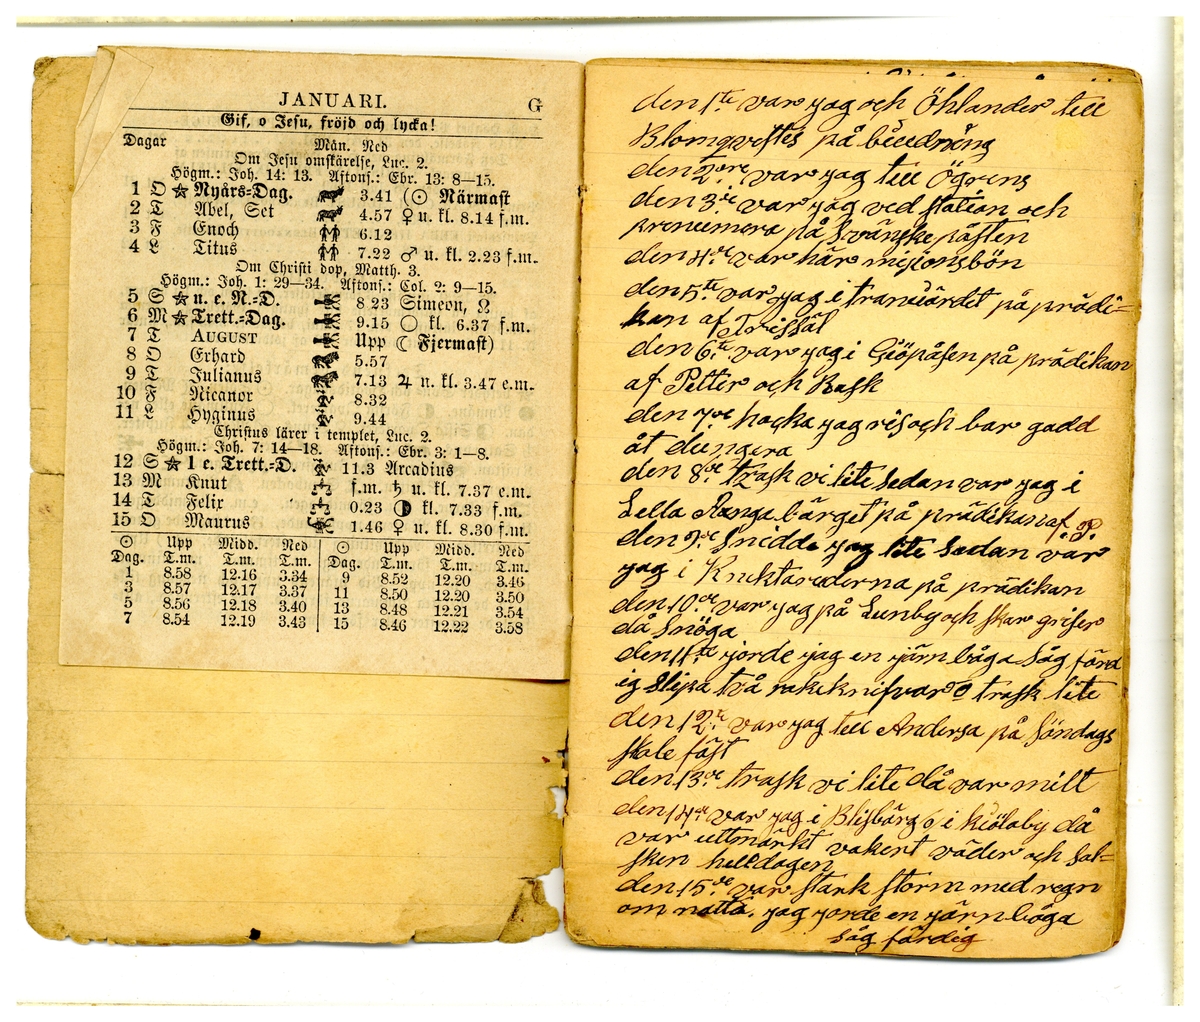 JANUARI. G
Gif, o Jesu, fröjd och lycka!
Dagar Mån. Ned
Om Jesu omskärelse, Luc. 2.
Högm.: Joh. 14: 13. Aftons.: Ebr. 13: 8—15.
1 O ☆ Nyårs=Dag. 3.41 (☉ Närmast
2 T Abel, Set 4.57 ♀ u. kl. 8.14 f.m.
3 F Enoch 6.12
4 L Titus 7.22 ♂ u. kl. 2.23 f.m.
Om Christi dop, Matth. 3.
Högm.: Joh. 1: 29—34. Aftons.: Col. 2: 9—15.
5 S ☆ u. e. N.=D. 8 23 Simeon, ☊
6 M ☆ Trett.=Dag. 9.15 ○ kl. 6.37 f.m.
7 T AUGUST Upp ☾ Fjermast)
8 O Erhard 5.57
9 T Julianus 7.13 ♃ u. kl. 3.47 e.m.
10 F Nicanor 8.32
11 L Hyginus 9.44
Christus lärer i templet, Luc. 2.
Högm.: Joh. 7: 14—18. Aftons.: Ebr. 3: 1—8.
12 S ☆ 1 e. Trett.=D. 11.3 Arcadius
13 M Knut f.m. ♄ u. kl. 7.37 e.m.
14 T Felix 0.23 ◑ kl. 7.33 f.m.
15 O Maurus 1.46 ♀ u. kl. 8.30 f.m.
☉ Upp Midd. Ned ☉ Upp Midd. Ned
Dag. T.m. T.m. T.m. Dag. T.m. T.m. T.m.
1 8.58 12.16 3.34 9 8.52 12.20 3.46
3 8.57 12.17 3.37 11 8.50 12.20 3.50
5 8.56 12.18 3.40 13 8.48 12.21 3.54
7 8.54 12.19 3.43 15 8.46 12.22 3.58
den 1te var jag och Öhlander till
Blomqvistes på
den 2dre var jag till Ögrens
den 3de var jag ved station och
prenumera på Svänske påsten
den 4de var här misionsbön
den 5te var jag i på prädi=
kan af
den 6te var jag i på prädikan
af Petter och Bask
den 7de hacka jag ris och bar gadd
åt dungera
den 8de trask vi lite sedan var jag i
Lella bärget på prädikan af P.
den 9de snidde jag lite sedan var
jag i Knektarederna på prädikan
den 10de var jag på Lunby och skar griser
då snöga
den 11te jorde jag en järn båga såg färd
ig slipa två rakeknifvar o trask lite
den 12te var jag till Andersa på söndags
skole fäst
den 13de trask vi lite då var milt
den 14de var jag i Blisbärg o i kiölaby då
var uttmärkt vakert väder och sol=
sken hell dagen
den 15de var stark storm med regn
om natta. jag jorde en järn båga
såg färdig